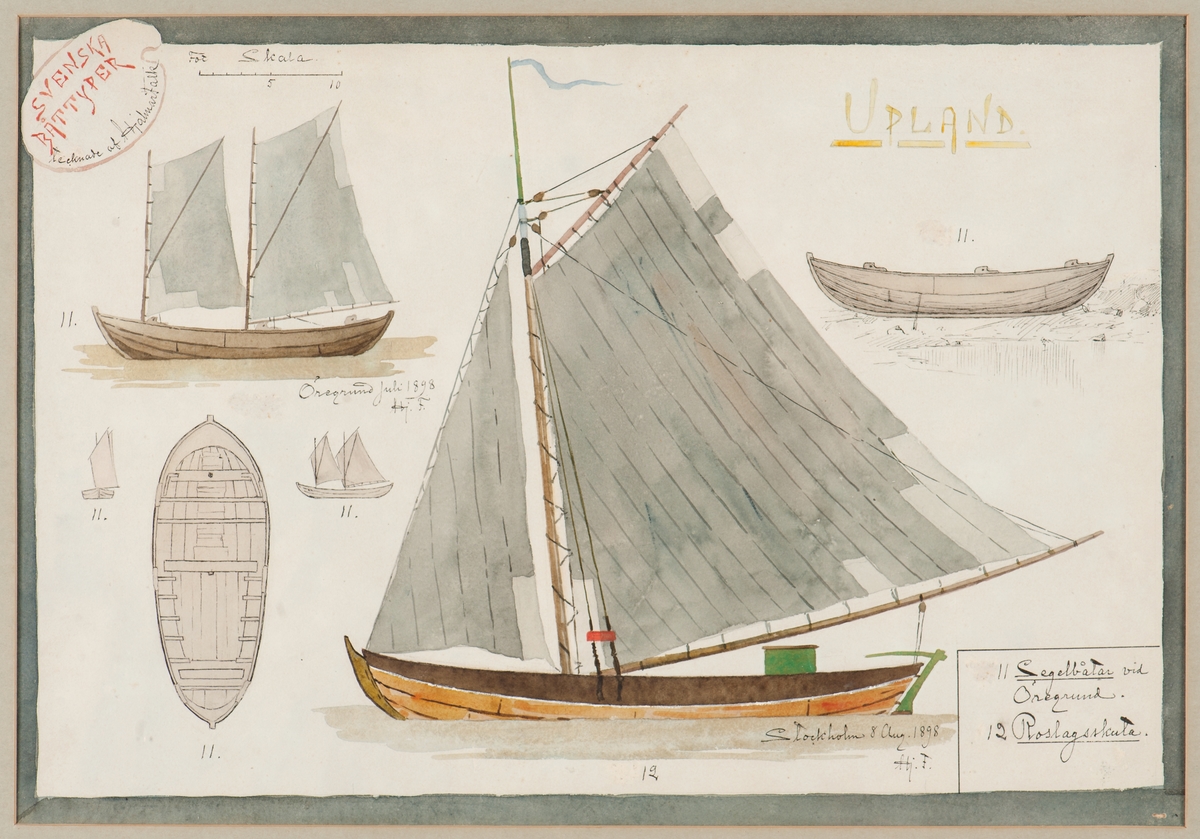 SVENSKA
BÅTTYPER
tecknade af Hjalmar Falk
Fot Skala.
5 10
UPLAND.
11.
11.
Öregrund Juli 1898
Hj. F.
11.
11.
11.
Stockholm 8 Aug. 1898
Hj. F.
12
11 Segelbåtar vid
Öregrund.
12 Roslagsskuta.